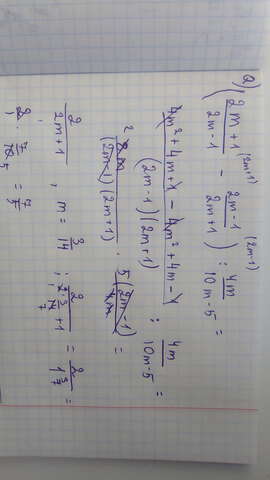 a) (2m+1/2m-1 (2m+1) - 2m-1/2m+1 (2m-1)) : 4m/10m-5 =
4m²+4m+1-4m²+4m-1/(2m-1)(2m+1) : 4m/10m-5 =
2 8m/(2m-1)(2m+1) · 5(2m-1)/4m =
2/2m+1 ; m = 3/14 ; 2/(2·3/14 7 + 1) = 2/1 3/7 =
2 · 7/10 5 = 7/5